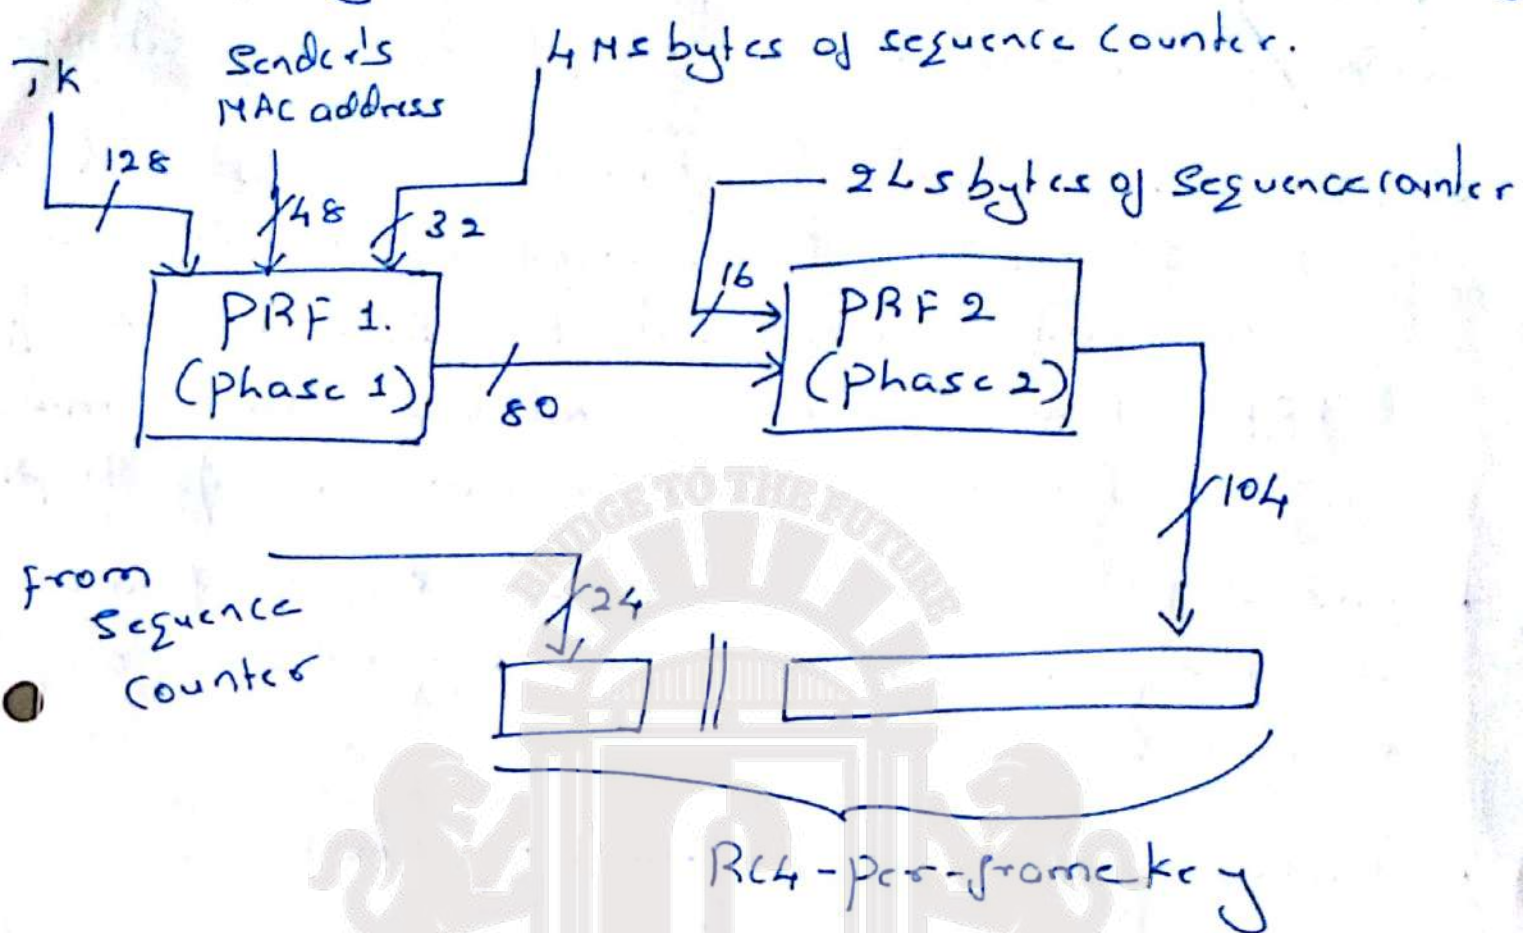 TK
Sender's
MAC address
4 MS bytes of sequence counter.
128
48
32
2 LS bytes of Sequence counter
16
PRF 1.
(phase 1)
80
PRF 2
(phase 2)
104
from
sequence
counter
24
||
RC4-per-frame key
BRIDGE TO THE FUTURE